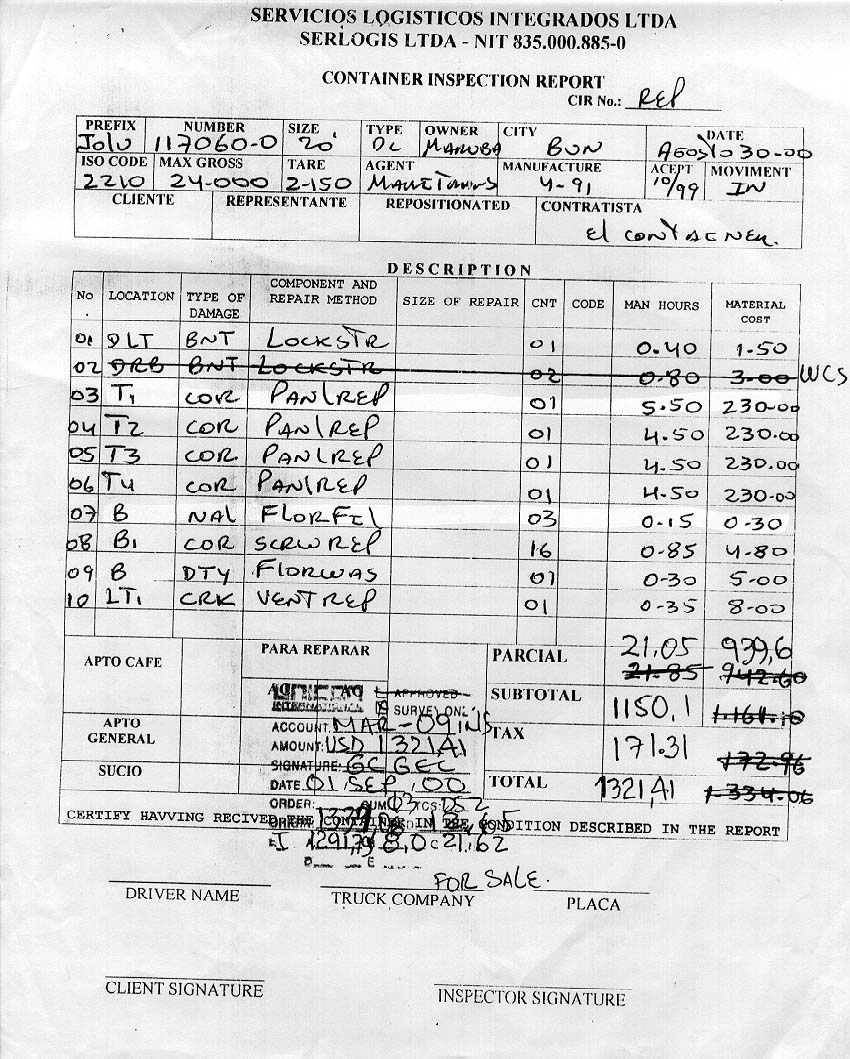 SERVICIOS LOGISTICOS INTEGRADOS LTDA
SERLOGIS LTDA - NIT 835.000.885-0
CONTAINER INSPECTION REPORT
CIR No.: REP
PREFIX NUMBER SIZE TYPE OWNER CITY DATE
JOLU 117060-0 20' DC MARUBA BUN AGOSTO 30-00
ISO CODE MAX GROSS TARE AGENT MANUFACTURE ACEPT MOVIMENT
2210 24-000 2-150 4-91 10/99 IN
CLIENTE REPRESENTANTE REPOSITIONATED CONTRATISTA
El CONTAGNER.
DESCRIPTION
No. LOCATION TYPE OF DAMAGE COMPONENT AND REPAIR METHOD SIZE OF REPAIR CNT CODE MAN HOURS MATERIAL COST
01 DLT BNT LOCKSTR 01 0.40 1.50
02 DRB BNT LOCKSTR 02 0.80 3.00 WCS
03 T1 COR PANLREP 01 5.50 230-00
04 T2 COR PANLREP 01 4.50 230.00
05 T3 COR PANLREP 01 4.50 230.00
06 T4 COR PANLREP 01 4.50 230-00
07 B NAL FLORFIL 03 0-15 0-30
08 B1 COR SCRWREP 16 0-85 4-80
09 B DTY FLORWAS 01 0-30 5-00
10 LT1 CRK VENTREP 01 0-35 8-00
APTO CAFE PARA REPARAR PARCIAL 21.05 939,6
21.85 942.60
APPROVED
SURVEY ONL
SUBTOTAL 1150,1 1.161.10
APTO GENERAL
ACCOUNT: MAR-09INS
TAX 171.31 172.96
AMOUNT: USD 1321,41
SUCIO
SIGNATURE: GC GEC
DATE 01 SEP, 00
TOTAL 1321,41 1.334.06
ORDER:
CERTIFY HAVVING RECIVED THE CONTAINER IN THE CONDITION DESCRIBED IN THE REPORT
FOR SALE.
DRIVER NAME TRUCK COMPANY PLACA
CLIENT SIGNATURE INSPECTOR SIGNATURE